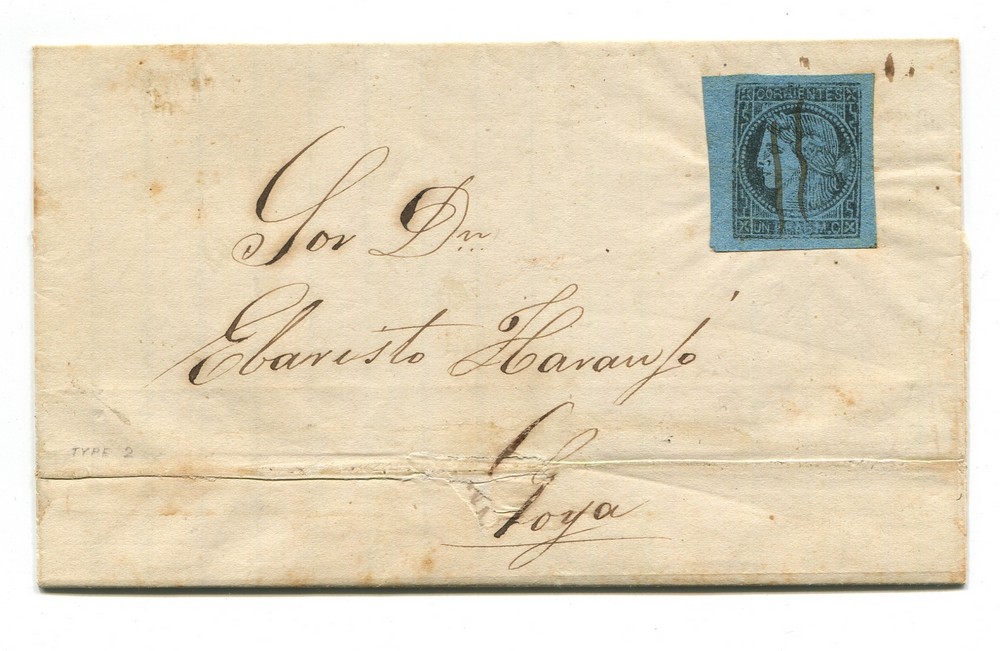 CORRIENTES
UN REAL M.C.
Sor Dn
Ebaristo Naranjo
TYPE 2
Goya